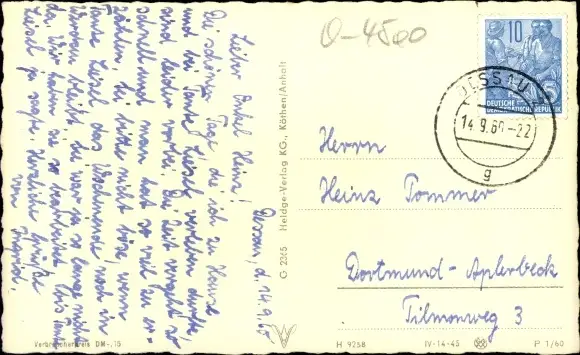 O-4500
10
DEUTSCHE
DEMOKRATISCHE REPUBLIK
DESSAU
14.9.60-22
g
Dessau, d. 14.9.60
Lieber Onkel Heinz!
Die schönen Tage die ich zu Hause
und bei Tante Liesel verleben durfte,
sind leider vorbei. Die Zeit vergeht so
schnell und man hat so viel zu er-
zählen. Sei bitte nicht böse, wenn
Tante Liesel das Wochenende noch in
bleibt, sie war so lange nicht
da. Wir haben sie so
Liesel zu sagte. Herzliche Grüße
von Ingrid.
G 2365 Heldge-Verlag KG., Köthen/Anhalt
Herrn
Heinz Pommer
Dortmund-Aplerbeck
Tilmonweg 3
Verbraucherpreis DM -,15
H 9258
IV-14-45
P 1/60